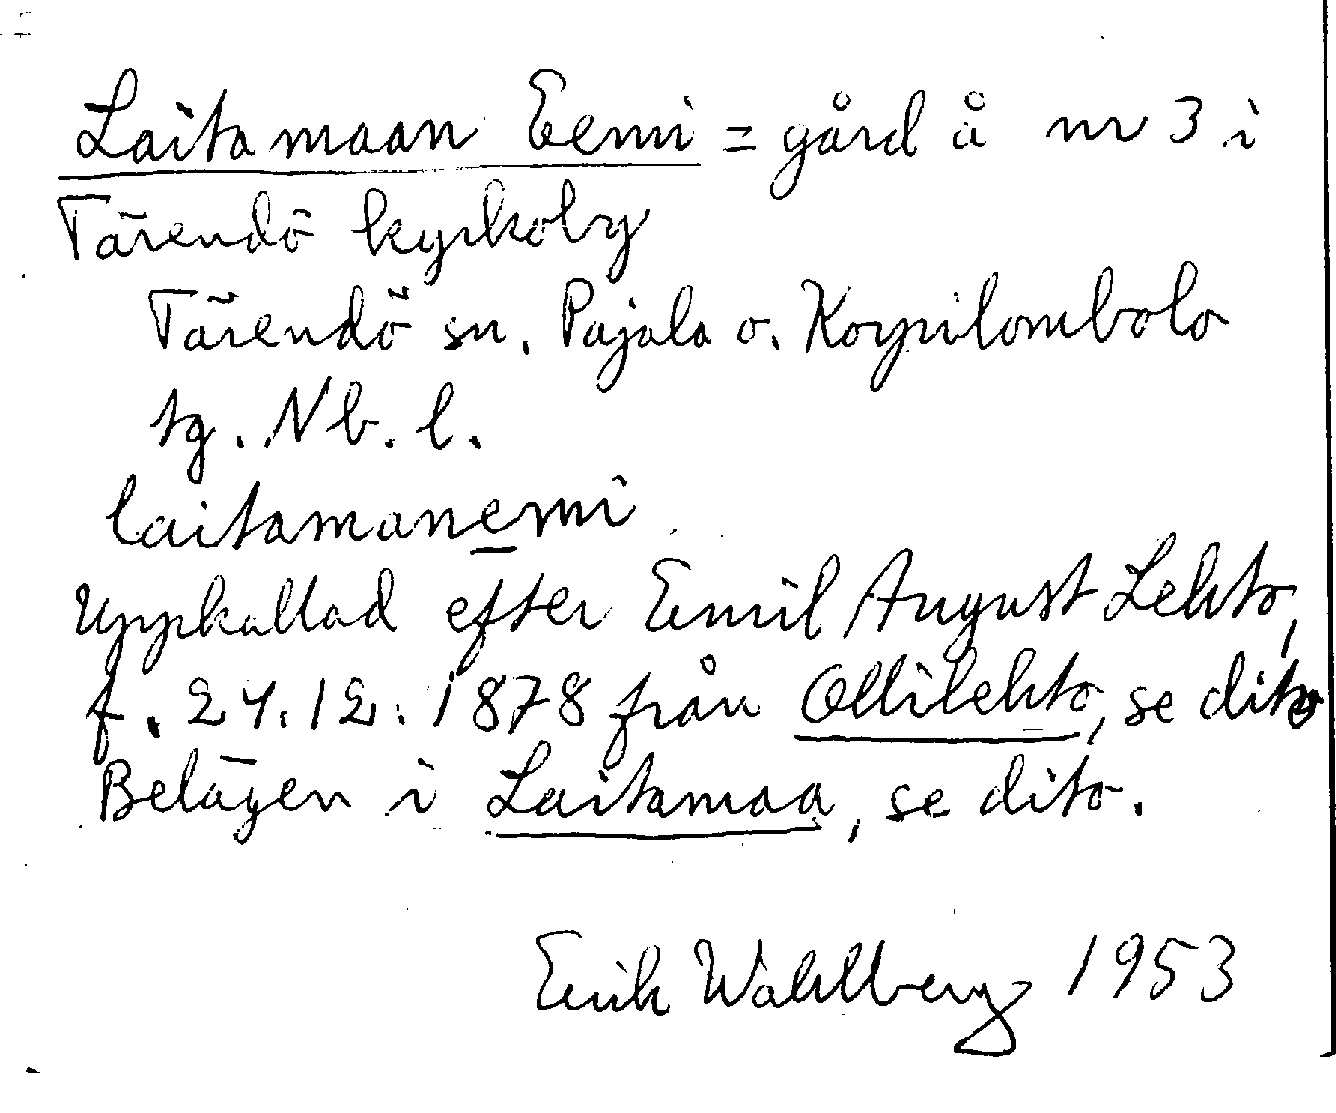 Laitamaan Eemi = gård å nr 3 i
Tärendö kyrkoby
Tärendö sn. Pajala o. Korpilombolo
tg. Nb. l.
laitamanemi
Uppkallad efter Emil August Lehto,
f. 24.12.1878 från Ollilehto, se dito
Belägen i Laitamaa, se dito.
Erik Wahlberg 1953